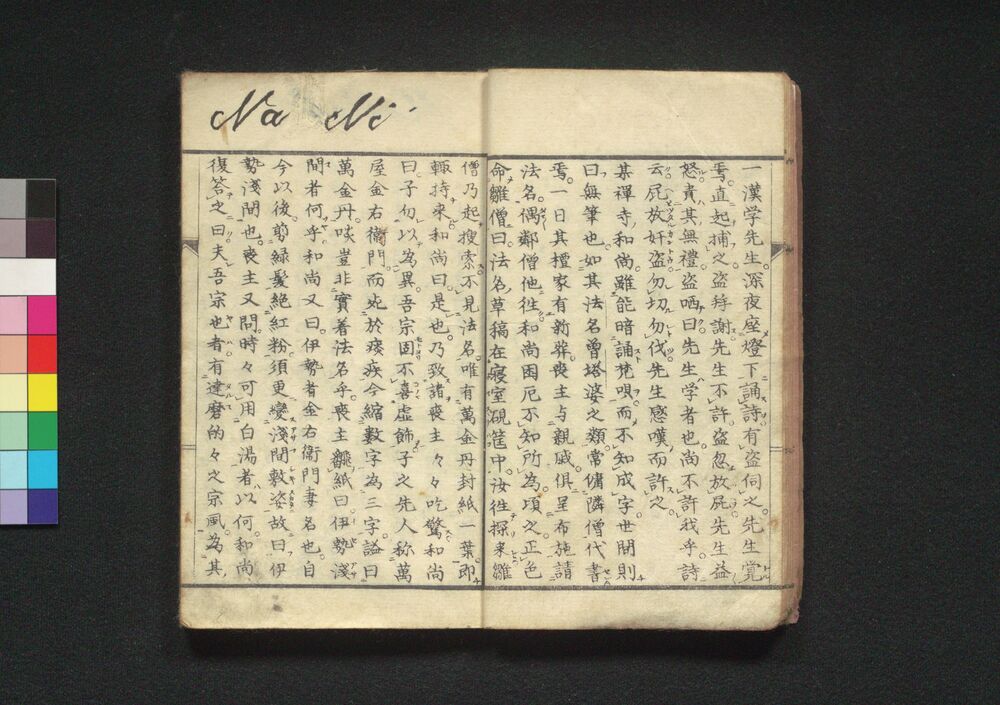 Na Ni
一漢学先生深夜座燈下誦詩有盗伺之先生覚
焉直起捕之盗拝謝先生不許盗忽放屁先生益
怒責其無禮盗哂曰先生学者也尚不許我乎詩
云屁放奸盗勿切勿伐先生感嘆而許之
某禪寺和尚雖能暗誦梵唄而不知成字世間則
曰無筆也如其法名曽塔婆之類常傭隣僧代書
焉一日其檀家有新葬喪主与親戚俱呈布施請
法名偶鄰僧他徃和尚困厄不知所為頃之正色
命雛僧曰法名草稿在寝室硯筐中汝徃探来雛
僧乃起搜索不見法名唯有萬金丹封紙一葉即
輙持来和尚曰是也乃致諸喪主々々吃驚和尚
曰子勿以為異吾宗固不喜虚飾子之先人称萬
屋金右衞門而死於痰疾今縮數字為三字謚曰
萬金丹啖豈非實着法名乎喪主飜紙曰伊勢淺
間者何乎和尚又曰伊勢者金右衞門妻名也自
今以後剪緑髮絶紅粉須更變淺間敷姿故曰伊
勢淺間也喪主又問時々可用白湯者以何和尚
復答之曰夫吾宗也者有達磨的々之宗風為其